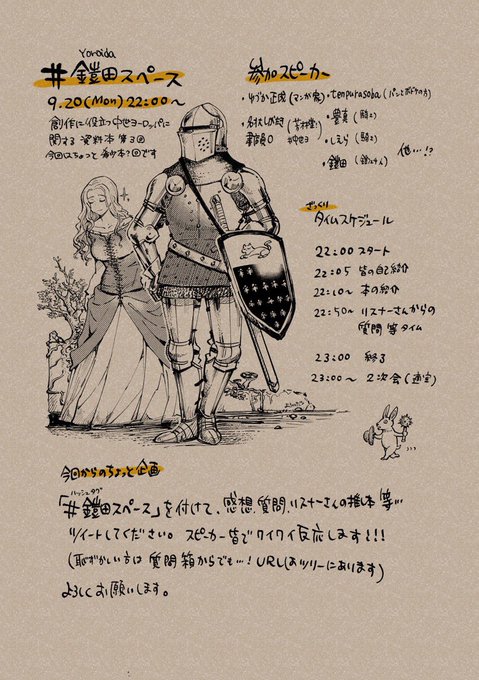 Yoroida
#鎧田スペース
9.20(Mon) 22:00〜
創作に役立つ中世ヨーロッパに
関する資料本 第3回
今回はちょっと希少本?回です
参加スピーカー
・ゆづか正成(マンガ家)
・tenpurasoba(パンとボドゲの方)
・豊真(騎士)
・しえら(騎士)
・鎧田(鎧さん)
他…!?
ざっくり
タイムスケジュール
22:00 スタート
22:05 皆の自己紹介
22:10〜 本の紹介
22:50〜 リスナーさんからの
質問等タイム
23:00 終了
23:00〜 2次会(適宜)
今日からのちょっと企画
ハッシュタグ
「#鎧田スペース」を付けて、感想、質問、リスナーさんの推し本 等…
ツイートしてください。スピーカー皆でワイワイ反応します!!!
(恥ずかしい方は 質問箱からでも…! URLはツリーにあります)
よろしくお願いします。